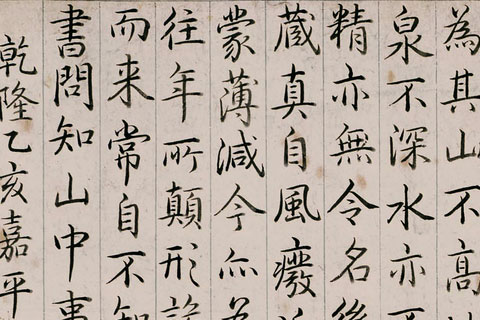 為其山不高
泉不深水亦不
精亦無令名後
蔵真自風癈
蒙薄減今亦為
往年所顛形
而来常自不知
書問知山中事
乾隆乙亥嘉平